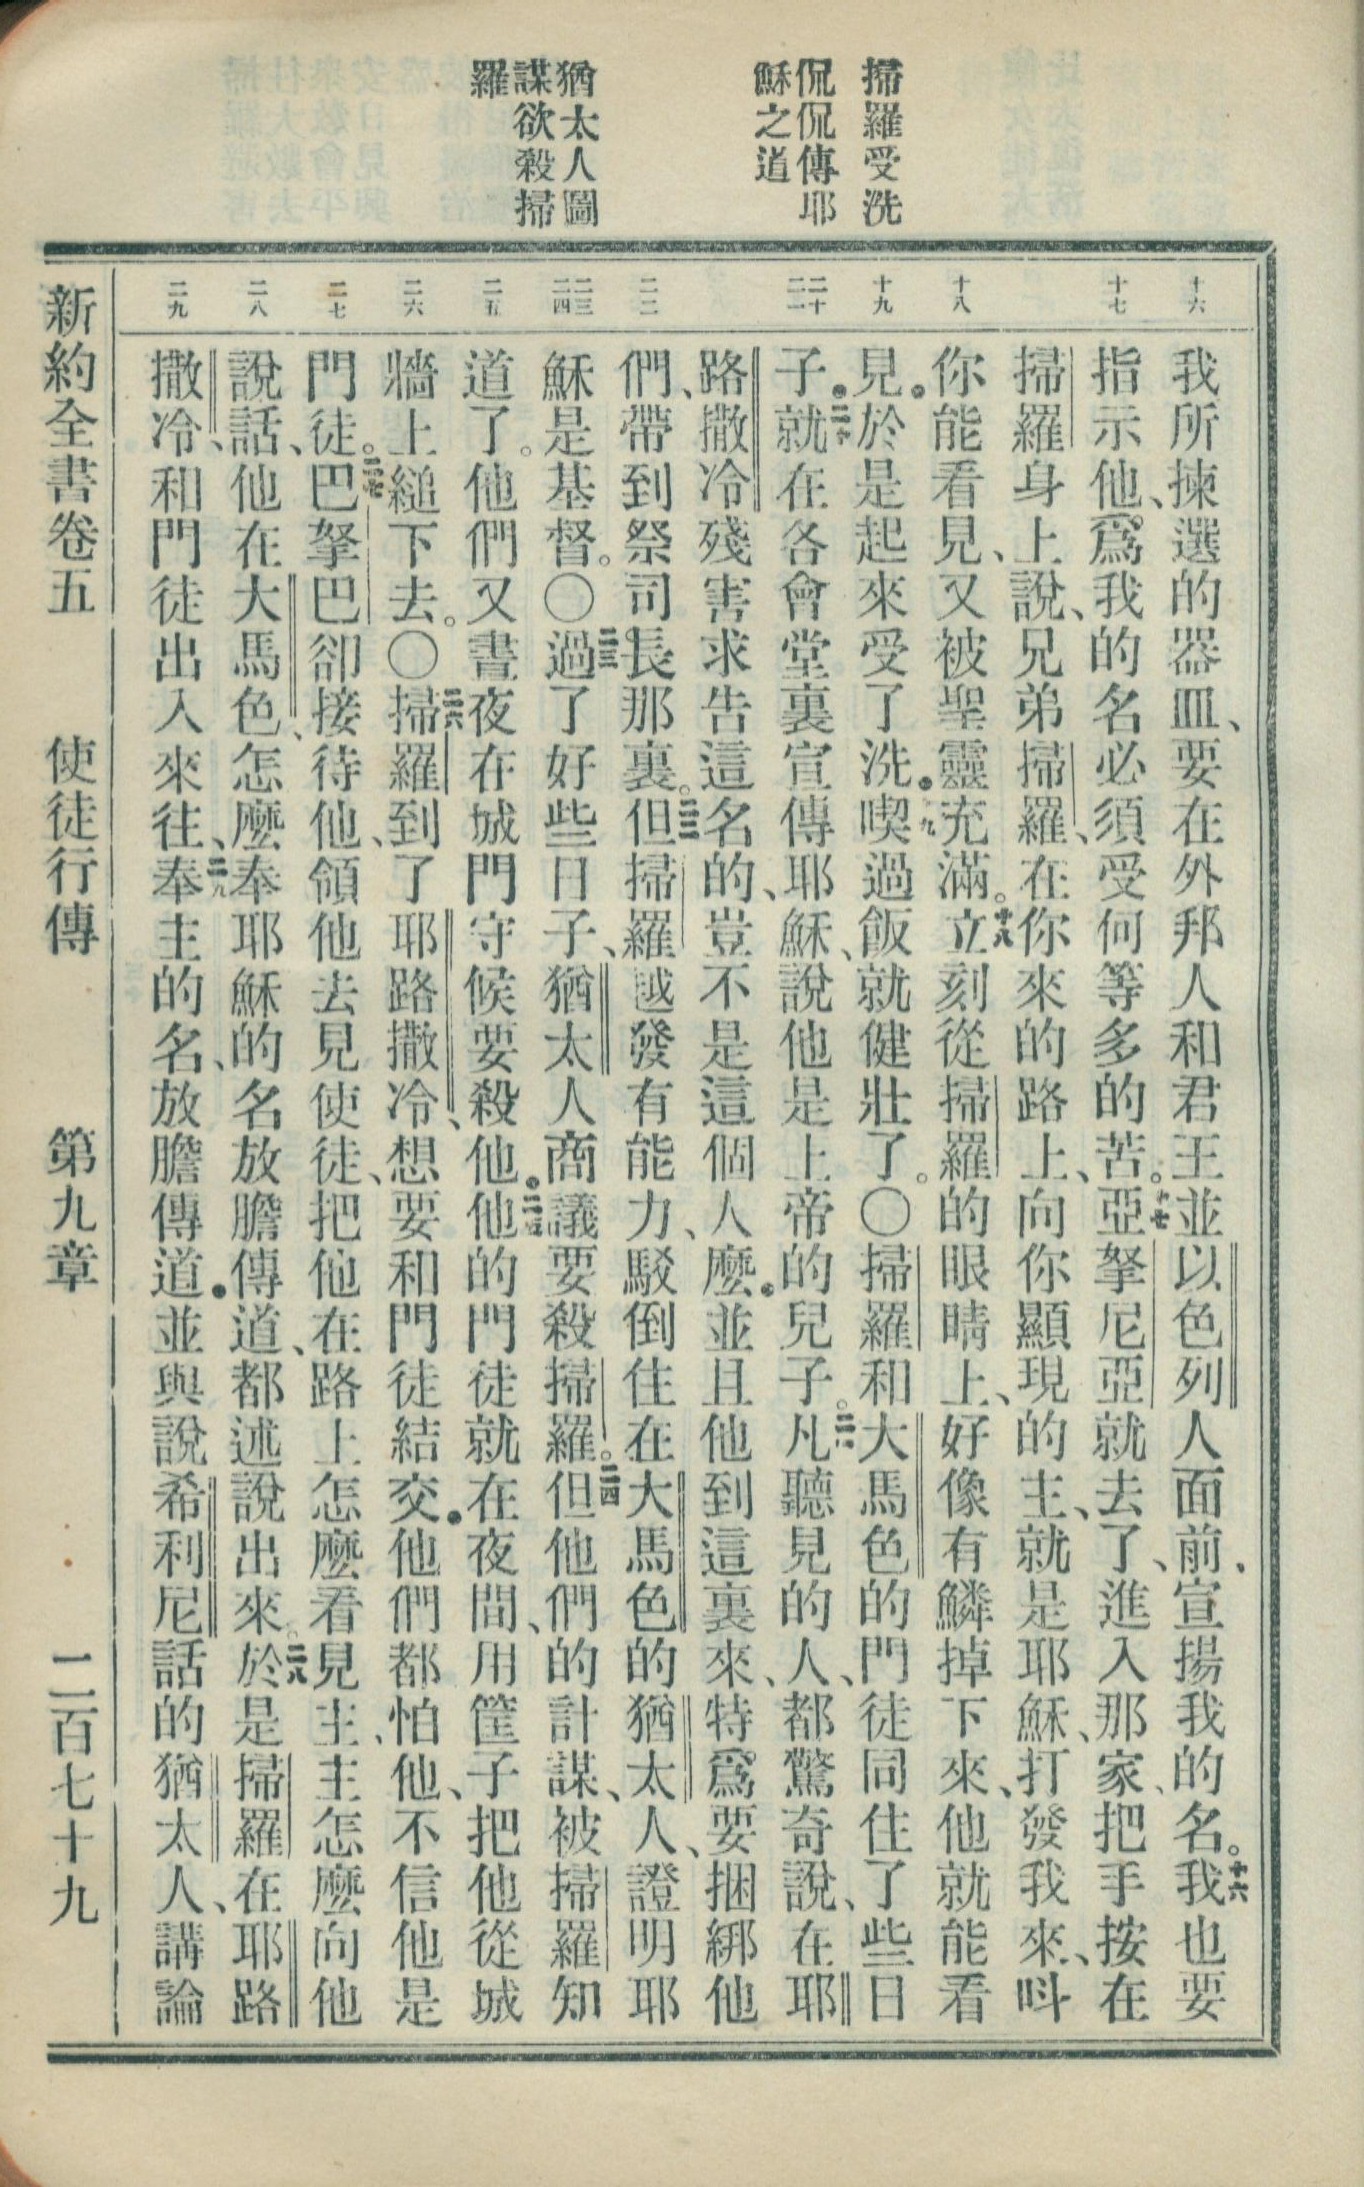 掃羅受洗
侃侃傳耶
穌之道
猶太人圖
謀欲殺掃
羅
十六
十七
十八
十九
二十
二一
二二
二三
二四
二五
二六
二七
二八
二九
我所揀選的器皿、要在外邦人和君王並以色列人面前、宣揚我的名。十六我也要
指示他、爲我的名必須受何等多的苦。十七亞拏尼亞就去了、進入那家、把手按在
掃羅身上說、兄弟掃羅、在你來的路上、向你顯現的主、就是耶穌、打發我來、呌
你能看見、又被聖靈充滿。十八立刻從掃羅的眼睛上、好像有鱗掉下來、他就能看
見.於是起來受了洗.十九喫過飯就健壯了。〇掃羅和大馬色的門徒同住了些日
子.二十就在各會堂裏宣傳耶穌、說他是上帝的兒子。二一凡聽見的人、都驚奇說、在耶
路撒冷殘害求告這名的、豈不是這個人麼.並且他到這裏來、特爲要捆綁他
們、帶到祭司長那裏。二二但掃羅越發有能力、駁倒住在大馬色的猶太人、證明耶
穌是基督。〇二三過了好些日子、猶太人商議要殺掃羅。二四但他們的計謀、被掃羅知
道了。他們又晝夜在城門守候要殺他.二五他的門徒就在夜間、用筐子把他從城
牆上縋下去。〇二六掃羅到了耶路撒冷、想要和門徒結交.他們都怕他、不信他是
門徒。二七巴拏巴卻接待他、領他去見使徒、把他在路上怎麼看見主、主怎麼向他
說話、他在大馬色、怎麼奉耶穌的名放膽傳道、都述說出來。二八於是掃羅在耶路
撒冷、和門徒出入來往、二九奉主的名、放膽傳道.並與說希利尼話的猶太人、講論
新約全書卷五 使徒行傳 第九章 二百七十九